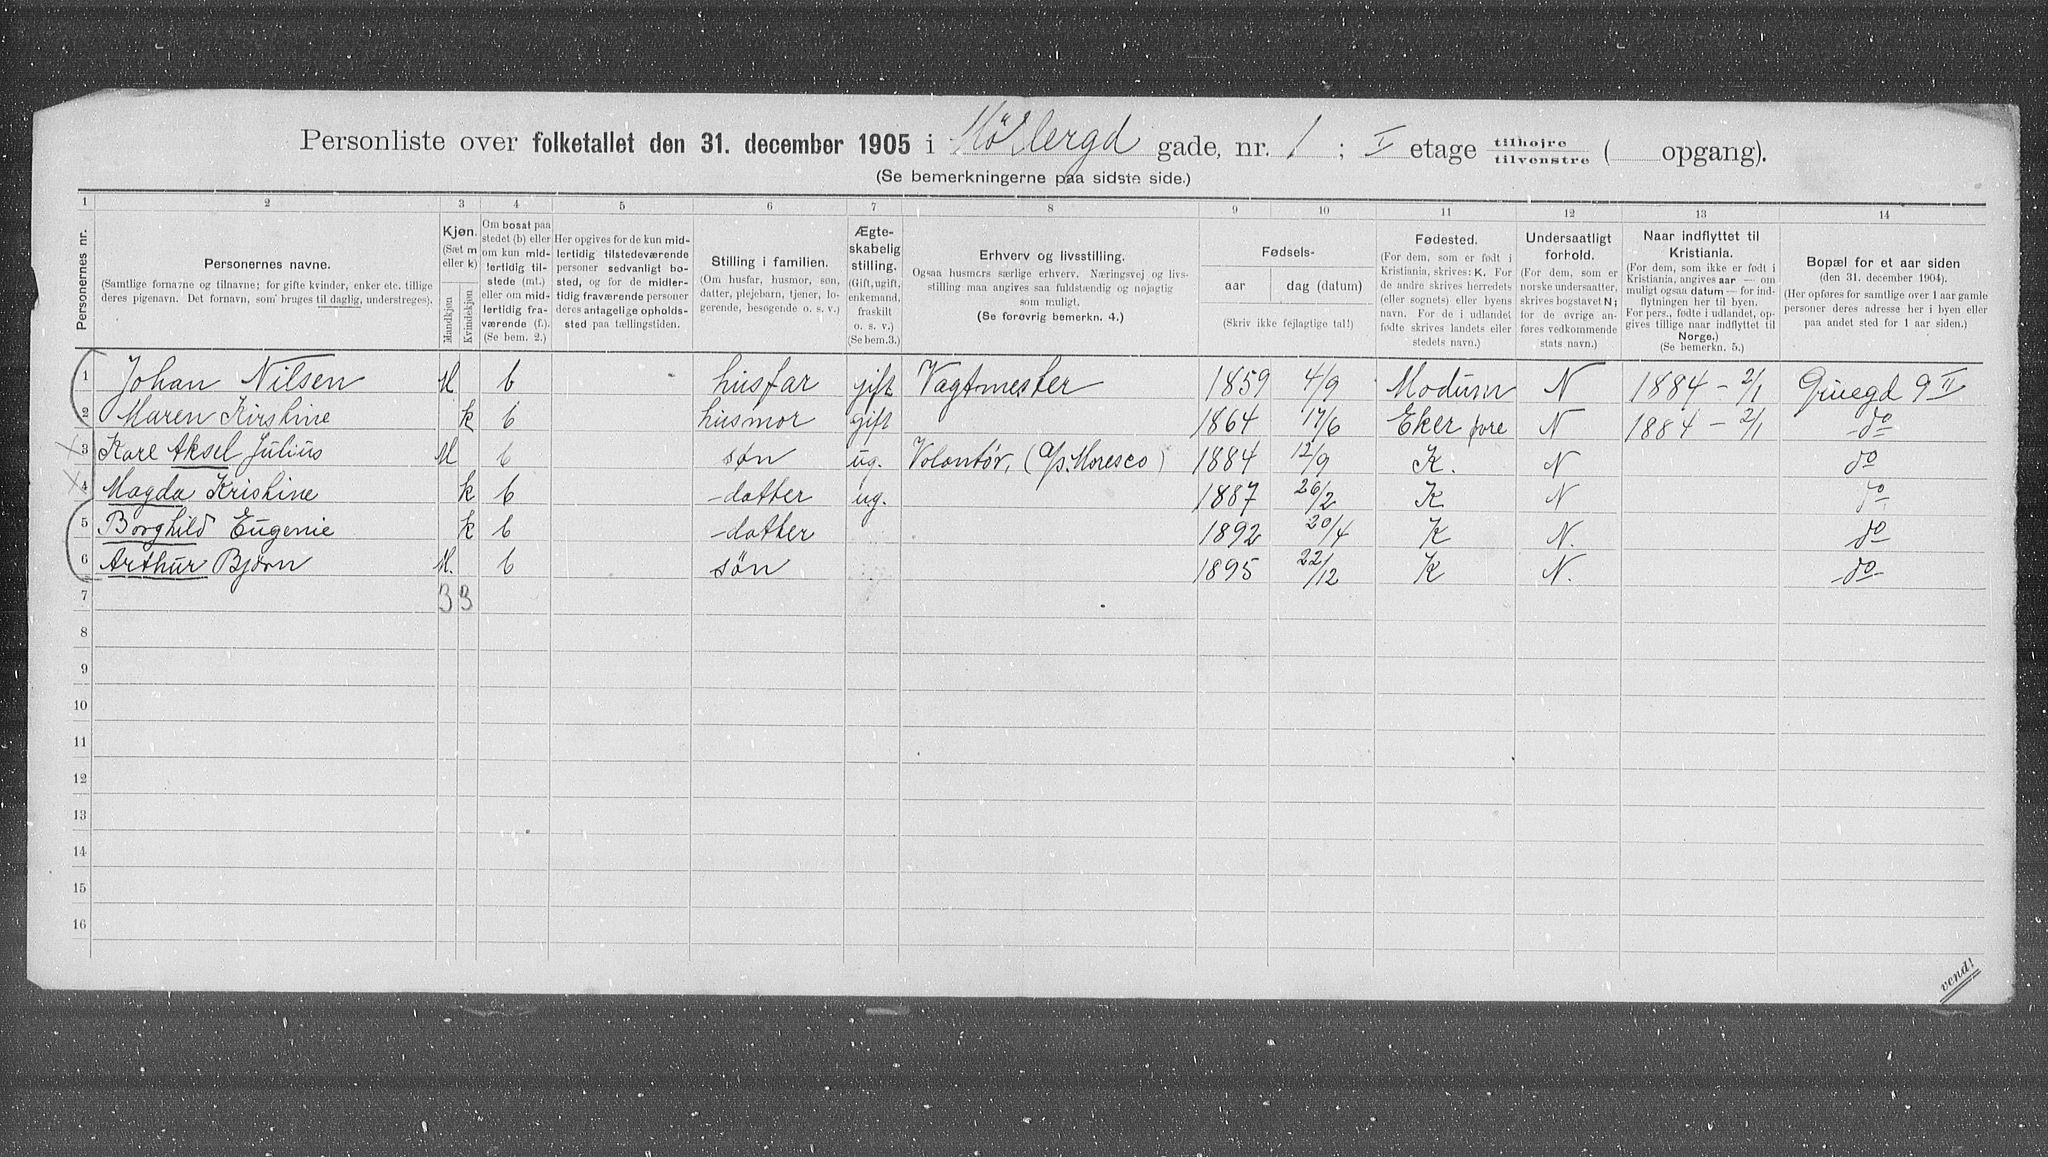 Personliste over folketallet den 31. december 1905 i Møllergd gade, nr. 1 ; II etage tilhøjre tilvenstre ( opgang).
(Se bemerkningerne paa sidste side.)
1 2 3 4 5 6 7 8 9 10 11 12 13 14
Personernes nr.
Personernes navne.
(Samtlige fornavne og tilnavne; for gifte kvinder, enker etc. tillige
deres pigenavn. Det fornavn, som bruges til daglig, understreges).
Kjøn.
(Sæt m
eller k)
Mandkjøn
Kvindekjøn
Om bosat paa
stedet (b) eller
om kun mid-
lertidig til-
stede (mt.)
eller om mid-
lertidig fra-
værende (f.).
(Se bem. 2.)
Her opgives for de kun mid-
lertidig tilstedeværende
personer sedvanligt bo-
sted, og for de midler-
tidig fraværende personer
deres antagelige opholds-
sted paa tællingstiden.
Stilling i familien.
(Om husfar, husmor, søn,
datter, plejebarn, tjener, lo-
gerende, besøgende o. s. v.)
Ægte-
skabelig
stilling.
(Gift, ugift,
enkemand,
fraskilt
o. s. v.)
(Se bem.3.)
Erhverv og livsstilling.
Ogsaa husmors særlige erhverv. Næringsvej og livs-
stilling maa angives saa fuldstændig og nøjagtig
som muligt.
(Se forøvrig bemerkn. 4.)
Fødsels-
aar
dag (datum)
(Skriv ikke fejlagtige tal!)
Fødested.
(For dem, som er født i
Kristiania, skrives: K. For
de andre skrives herredets
(eller sognets) eller byens
navn. For de i udlandet
fødte skrives landets eller
stedets navn.)
Undersaatligt
forhold.
(For dem, som er
norske undersaatter,
skrives bogstavet N;
for de øvrige an-
føres vedkommende
stats navn.)
Naar indflyttet til
Kristiania.
(For dem, som ikke er født i
Kristiania, angives aar — om
muligt ogsaa datum — for ind-
flytningen her til byen.
For pers., fødte i udlandet, op-
gives tillige naar indflyttet til
Norge.)
(Se bemerkn. 5.)
Bopæl for et aar siden
(den 31. december 1904).
(Her opføres for samtlige over 1 aar gamle
personer deres adresse her i byen eller
paa andet sted for 1 aar siden.)
1 Johan Nilsen M b husfar gift Vagtmester 1859 4/9 Modum N 1884 - 2/1 9 II
2 Maren Kirstine k b husmor gift 1864 17/6 Eker N 1884 - 2/1 do
3 Karl Aksel Julius M b søn ug. Volontør, (A/s. Moresco) 1884 12/9 K. N do
4 Magda Kristine k b -datter ug. 1887 26/2 K N do
5 Borghild Eugenie k b -datter 1892 20/4 K N. do
6 Arthur Bjørn M. b søn 1895 22/12 K N. -do-
7 3 3
8
9
10
11
12
13
14
15
16
vend!